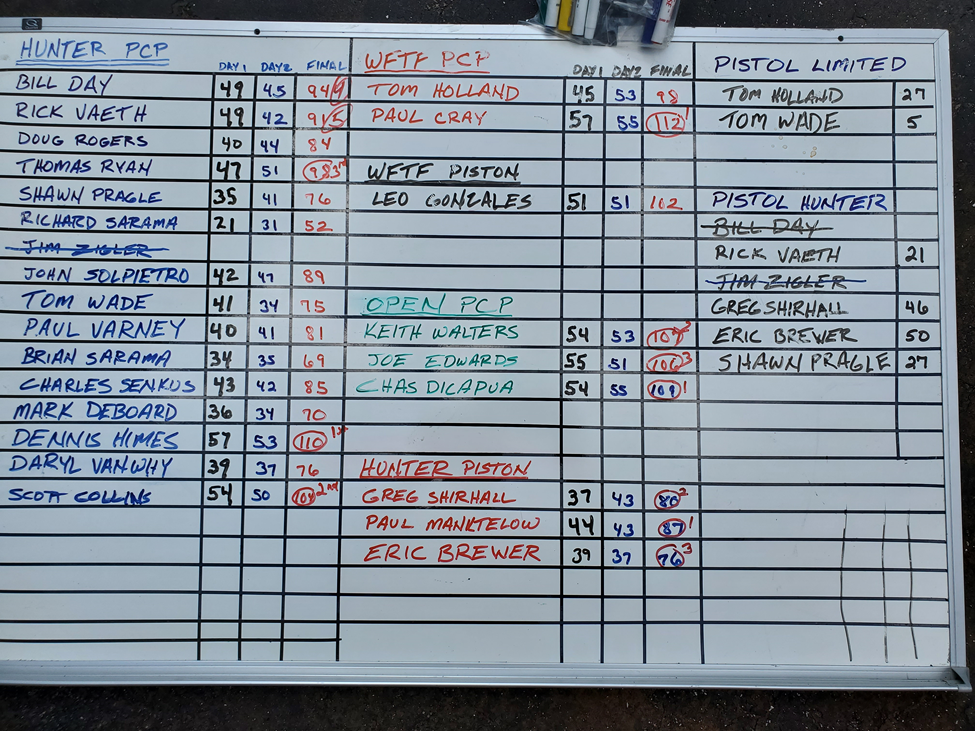 HUNTER PCP
DAY 1 DAY 2 FINAL
BILL DAY 49 45 94
RICK VAETH 49 42 91
DOUG ROGERS 40 44 84
THOMAS RYAN 47 51 98 3rd
SHAWN PRAGLE 35 41 76
RICHARD SARAMA 21 31 52
JIM ZIGLER
JOHN SOLPIETRO 42 47 89
TOM WADE 41 34 75
PAUL VARNEY 40 41 81
BRIAN SARAMA 34 35 69
CHARLES SENKUS 43 42 85
MARK DEBOARD 36 34 70
DENNIS HIMES 57 53 110 1st
DARYL VANWHY 39 37 76
SCOTT COLLINS 54 50 104 2nd
WFTF PCP
DAY 1 DAY 2 FINAL
TOM HOLLAND 45 53 98
PAUL CRAY 57 55 112 1
WFTF PISTON
LEO GONZALES 51 51 102
OPEN PCP
KEITH WALTERS 54 53 107 2
JOE EDWARDS 55 51 106 3
CHAS DICAPUA 54 55 109 1
HUNTER PISTON
GREG SHIRHALL 37 43 80 2
PAUL MANKTELOW 44 43 87 1
ERIC BREWER 39 37 76 3
PISTOL LIMITED
TOM HOLLAND 27
TOM WADE 5
PISTOL HUNTER
BILL DAY
RICK VAETH 21
JIM ZIGLER
GREG SHIRHALL 46
ERIC BREWER 50
SHAWN PRAGLE 27